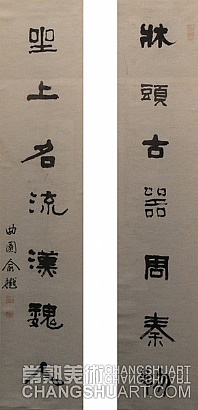 牀頭古器周秦物
坐上名流漢魏人
曲園俞樾
常熟美術
CHANGSHUART
CHANGSHUART